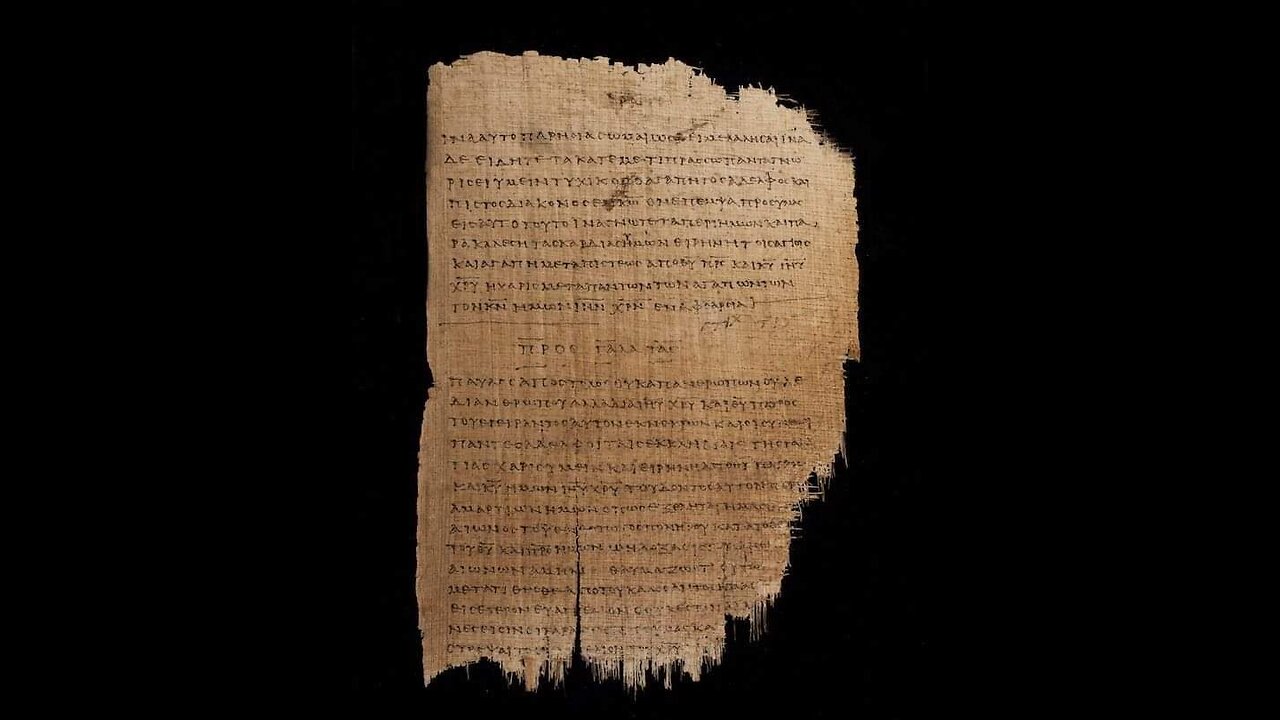 ΙΝΑΑΥΤΟΠΑΡΗϹΙΑϹΩΜΑΙΩϹΔΕΙΜΕΛΑΛΗϹΑΙΙΝΑ
ΔΕΕΙΔΗΤΕΤΑΚΑΤΕΜΕΤΙΠΡΑϹϹΩΠΑΝΤΑΓΝΩ
ΡΙϹΕΙΥΜΕΙΝΤΥΧΙΚΟϹΟΑΓΑΠΗΤΟϹΑΔΕΛΦΟϹΚΑΙ
ΠΙϹΤΟϹΔΙΑΚΟΝΟϹΕΝΚ̅Ω̅ΟΝΕΠΕΜΨΑΠΡΟϹΥΜΑϹ
ΕΙϹΑΥΤΟΤΟΥΤΟΙΝΑΓΝΩΤΕΤΑΠΕΡΙΗΜΩΝΚΑΙΠΑ
ΡΑΚΑΛΕϹΗΤΑϹΚΑΡΔΙΑϹΥΜΩΝΕΙΡΗΝΗΤΟΙϹΑΓΙΟΙϹ
ΚΑΙΑΓΑΠΗΜΕΤΑΠΙϹΤΕΩϹΑΠΟΘ̅Υ̅Π̅Ρ̅Ϲ̅ΚΑΙΚ̅Υ̅Ι̅Η̅Υ̅
Χ̅Ρ̅Υ̅ΗΧΑΡΙϹΜΕΤΑΠΑΝΤΩΝΤΩΝΑΓΑΠΩΝΤΩΝ
ΤΟΝΚ̅Ν̅ΗΜΩΝΙ̅Η̅Ν̅Χ̅Ρ̅Ν̅ΕΝΑΦΘΑΡϹΙΑ
ΠΡΟϹ ΓΑΛΑΤΑϹ
ΠΑΥΛΟϹΑΠΟϹΤΟΛΟϹΟΥΚΑΠΑΝΘΡΩΠΩΝΟΥΔΕ
ΔΙΑΝΘΡΩΠΟΥΑΛΛΑΔΙΑΙ̅Η̅Υ̅Χ̅Ρ̅Υ̅ΚΑΙΘ̅Υ̅ΠΑΤΡΟϹ
ΤΟΥΕΓΕΙΡΑΝΤΟϹΑΥΤΟΝΕΚΝΕΚΡΩΝΚΑΙΟΙϹΥΝΕΜΟΙ
ΠΑΝΤΕϹΑΔΕΛΦΟΙΤΑΙϹΕΚΚΛΗϹΙΑΙϹΤΗϹΓΑΛΑ
ΤΙΑϹΧΑΡΙϹΥΜΕΙΝΚΑΙΕΙΡΗΝΗΑΠΟΘ̅Υ̅
ΚΑΙΚ̅Υ̅ΗΜΩΝΙ̅Η̅Υ̅Χ̅Ρ̅Υ̅ΤΟΥΔΟΝΤΟϹΑΥΤΟΝΠΕΡΙ
ΑΜΑΡΤΙΩΝΗΜΩΝΟΠΩϹΕΞΕΛΗΤΑΙΗΜΑϹ
ΑΙΩΝΟϹΤΟΥ ΠΟΝΗΡΟΥΚΑΤΑΤΟ
ΤΟΥΘ̅Υ̅ΚΑΙΠ̅Ρ̅Ϲ̅ΗΜΩΝΩΗΔΟΞΑΕΙϹ
ΑΙΩΝΩΝΑΜΗΝ ΘΑΥΜΑΖΩΟΤΙΟΥΤΩϹ
ΜΕΤΑΤΙΘΕϹΘΕΑΠΟΤΟΥΚΑΛΕϹΑΝΤΟϹΥΜΑϹ
ΕΙϹΕΤΕΡΟΝΕΥΑΓΓΕΛΙΟΝΟΟΥΚΕϹΤΙΝ